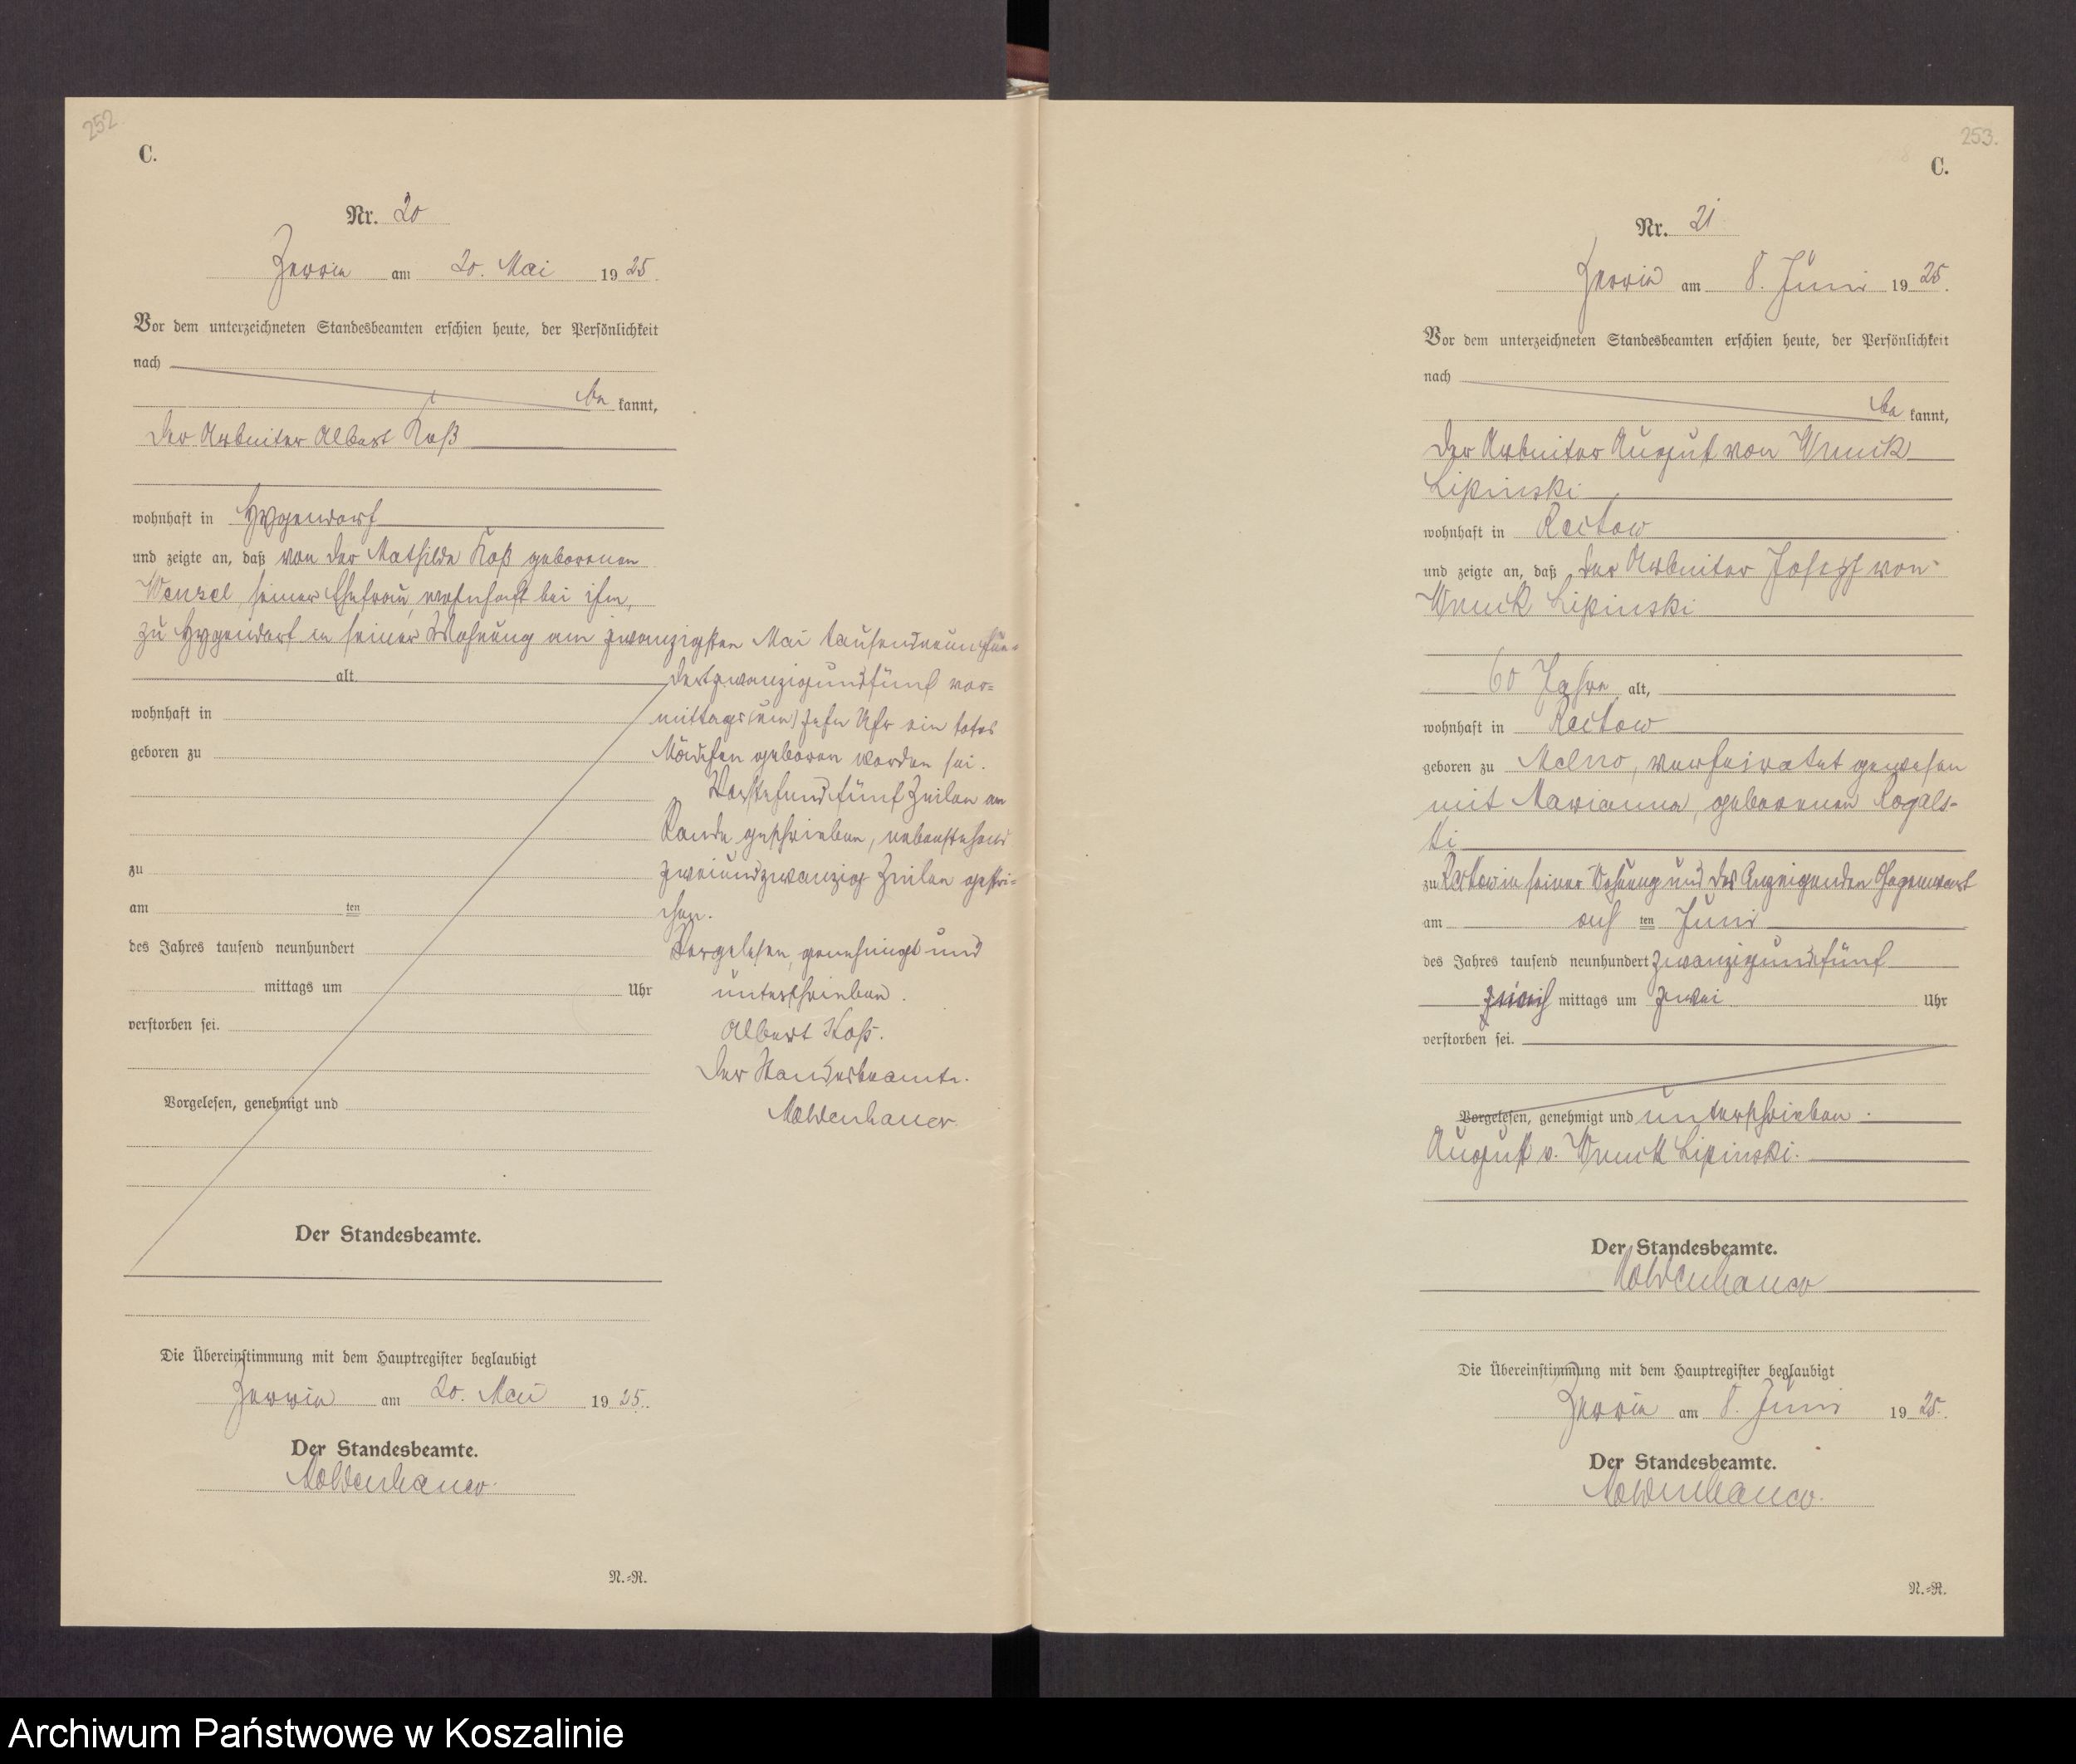 252.
C.
Nr. 20
Zerrin am 20. Mai 1925.
Vor dem unterzeichneten Standesbeamten erschien heute, der Persönlichkeit
nach
be kannt,
der Arbeiter Albert Koß
wohnhaft in Hygendorf
und zeigte an, daß von der Mathilde Koß geborenen
Wenzel, seiner Ehefrau, wohnhaft bei ihm,
zu Hygendorf in seiner Wohnung am zwanzigsten Mai tausendneunhun=
alt
dertzwanzigundfünf vor=
wohnhaft in
mittags (um) zehn Uhr ein totes
geboren zu
Mädchen geboren worden sei.
Vorstehend fünf Zeilen am
Rande geschrieben, nebenstehend
zu
zweiundzwanzig Zeilen gestri=
am ten
chen.
des Jahres tausend neunhundert
Vorgelesen, genehmigt und
mittags um Uhr
unterschrieben.
verstorben sei.
Albert Koß.
Der Standesbeamte.
Vorgelesen, genehmigt und
Moldenhauer
Der Standesbeamte.
Die Übereinstimmung mit dem Hauptregister beglaubigt
Zerrin am 20. Mai 1925.
Der Standesbeamte.
Moldenhauer.
N.=R.
253.
C.
Nr. 21
Zerrin am 8. Juni 1925.
Vor dem unterzeichneten Standesbeamten erschien heute, der Persönlichkeit
nach
be kannt,
der Arbeiter August von Wnuck
Lipinski
wohnhaft in Reckow
und zeigte an, daß der Arbeiter Joseph von
Wnuck Lipinski
60 Jahre alt,
wohnhaft in Reckow
geboren zu Melno, verheiratet gewesen
mit Marianna, geborenen Rogals=
ki
zu Reckow in seiner Wohnung und des Anzeigenden Gegenwart
am ten Juni
des Jahres tausend neunhundert zwanzigundfünf
mittags um zwei Uhr
verstorben sei.
Vorgelesen, genehmigt und unterschrieben.
August v. Wnuck Lipinski.
Der Standesbeamte.
Moldenhauer
Die Übereinstimmung mit dem Hauptregister beglaubigt
Zerrin am 8. Juni 1925.
Der Standesbeamte.
Moldenhauer.
N.=R.
Archiwum Państwowe w Koszalinie